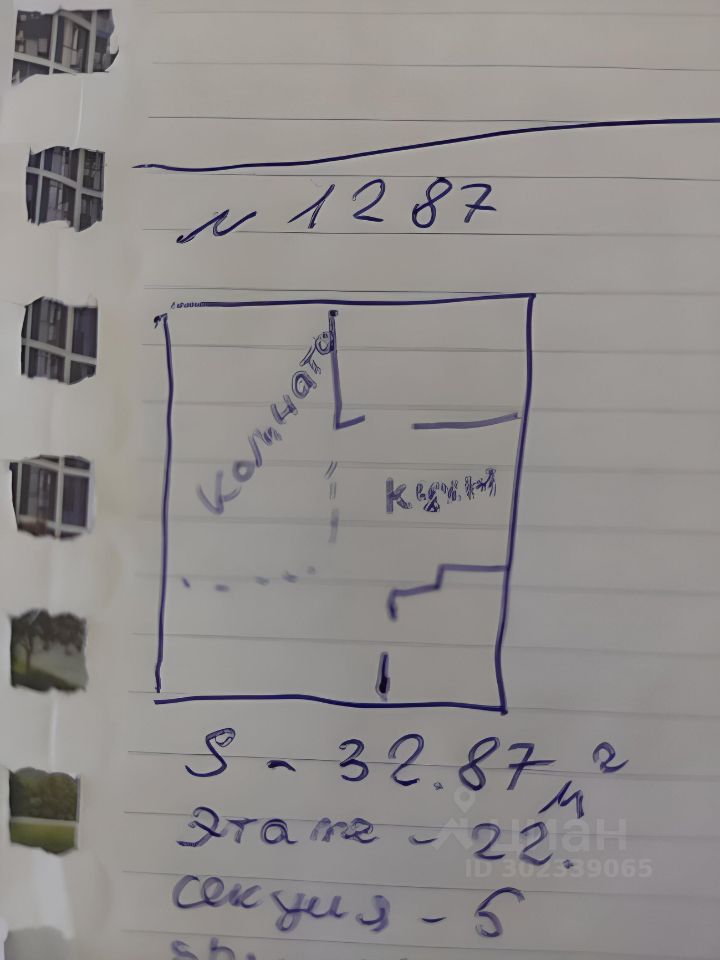 N 1287
комната
кухня
S - 32.87 м²
этаж - 22.
циан
ID 302339065
секция - 5